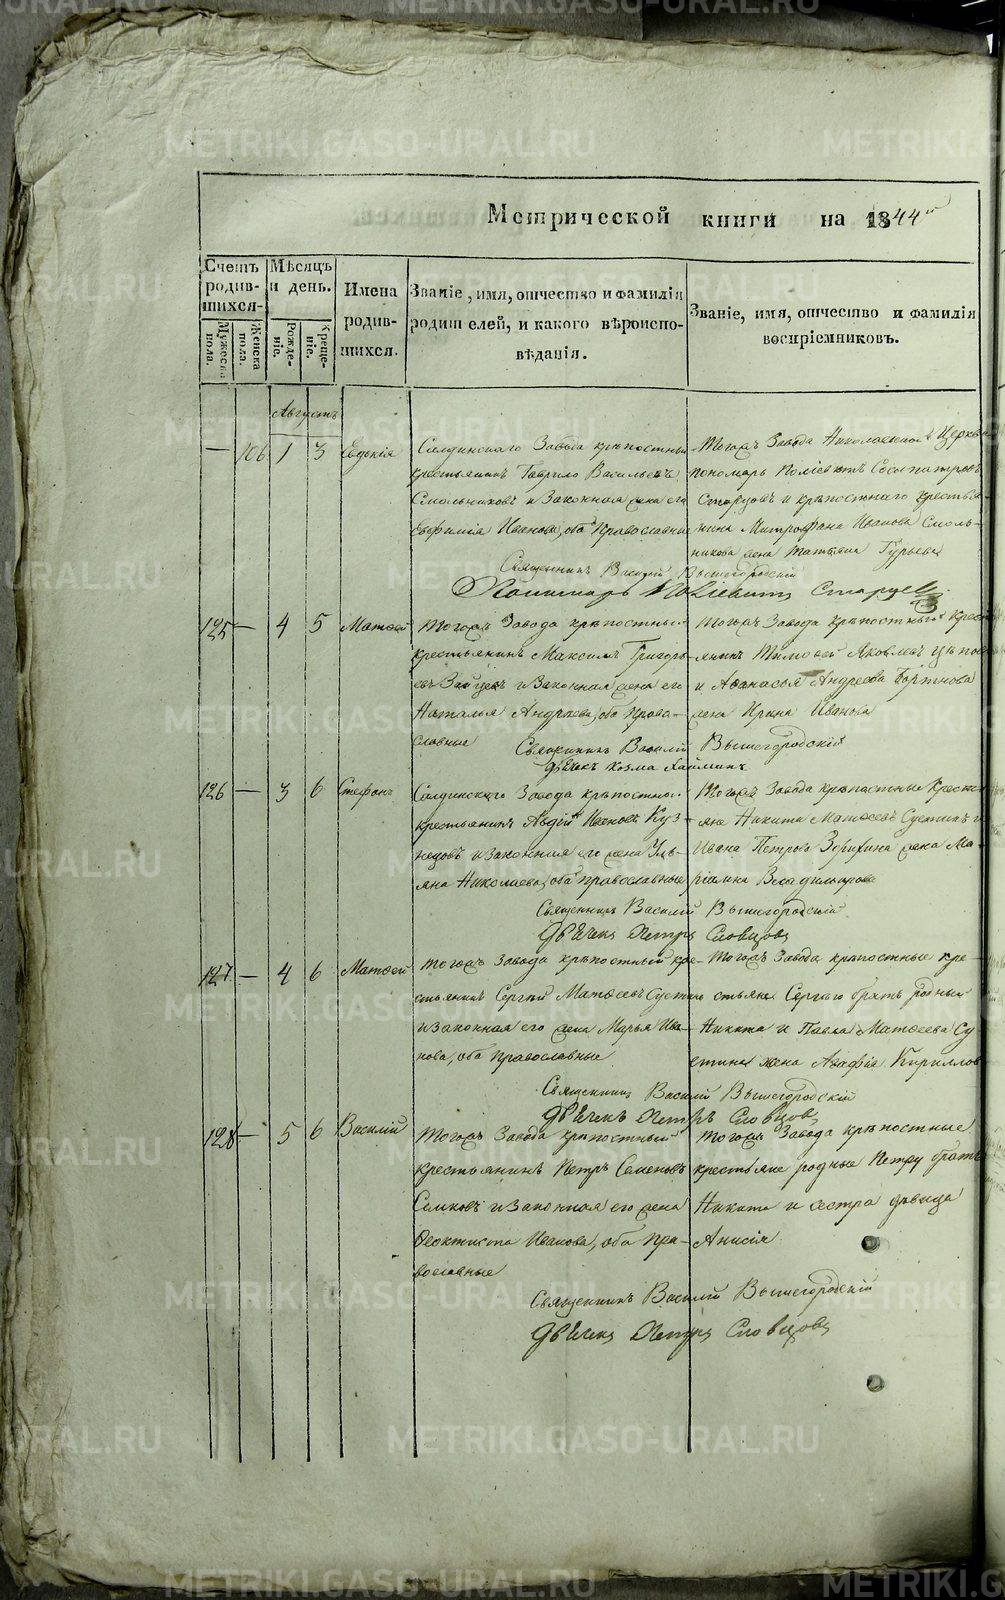 METRIKI.GASO-URAL.RU
Метрической книги на 1844й
Счетъ родив-шихся.
Мужеска пола.
Женска пола.
Мѣсяцъ и день.
Рожде-ніе.
Креще-ніе.
Имена родив-шихся.
Званіе, имя, отчество и фамилія
родителей, и какого вѣроиспо-
вѣданія.
Званіе, имя, отчество и фамилія
воспріемниковъ.
Августъ
— 106 1 3 Евдокія
Салдинскаго Завода крѣпостный
крестьянинъ Гаврило Васильевъ
Смольниковъ и Законная жена его
Евфимія Иванова, оба Православные
Тогожъ Завода Николаевской Церкви
пономарь Полиевктъ Сосипатровъ
Старцовъ и крѣпостнаго крестья-
нина Митрофана Иванова Смоль-
никова жена Татьяна Гурьева
Священникъ Василій Вышегородскій
Пономарь Полиевктъ Старцевъ
125 — 4 5 Матѳей
Тогожъ Завода крѣпостный
крестьянинъ Максимъ Григорь-
евъ Зайцевъ и Законная жена его
Наталья Андреева, оба Право-
славные
Тогожъ Завода крѣпостный крест
янинъ Тимоѳей Яковлевъ
и Аѳанасья Андреева Портнова
жена Ирина Иванова
Священникъ Василій Вышегородскій
Дьячекъ Козма
126 — 3 6 Стефанъ
Салдинскаго Завода крѣпостный
крестьянинъ Авдій Ивановъ Куз-
нецовъ и законная его жена Уль-
яна Николаева, оба православные
Тогожъ Завода крѣпостные Кресть
яне Никита Матѳеевъ Сустинъ и
Ивана Петрова жена Ма-
ріанна Владимірова
Священникъ Василій Вышегородскій
Дьячекъ Петръ Словцовъ
127 — 4 6 Матѳей
Тогожъ Завода крѣпостный кре-
стьянинъ Сергій Матѳеевъ Сустинъ
и законная его жена Марья Ива-
нова, оба православные
Тогожъ Завода крѣпостные кре-
стьяне Сергѣю братъ родный
Никита и Павла Матѳеева Су
стина жена Агафія Кириллов
Священникъ Василій Вышегородскій
Дьячекъ Петръ Словцовъ
128 — 5 6 Василій
Тогожъ Завода крѣпостный
крестьянинъ Петръ Семеновъ
и Законная его жена
Ѳеоктиста Иванова, оба пра-
вославные
Тогожъ Завода крѣпостные
крестьяне родные Петру братъ
Никита и сестра дѣвица
Анисія
Священникъ Василій Вышегородскій
Дьячекъ Петръ Словцовъ